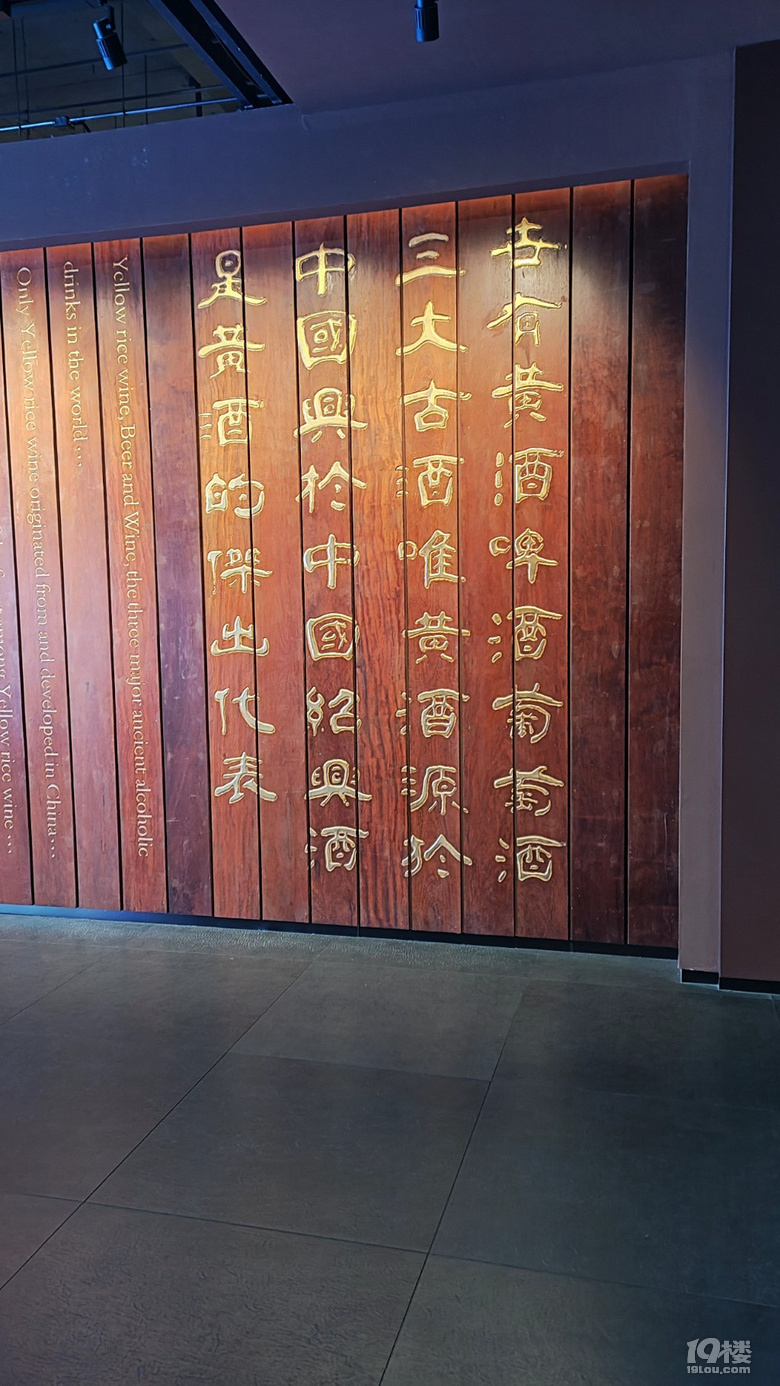 世有黄酒啤酒葡萄酒
三大古酒唯黄酒源於
中國興於中國紹興酒
是黄酒的傑出代表
Yellow rice wine, Beer and Wine, the three major ancient alcoholic
drinks in the world …
Only Yellow rice wine originated from and developed in China…
among Yellow rice wine …
19楼
19Lou.com